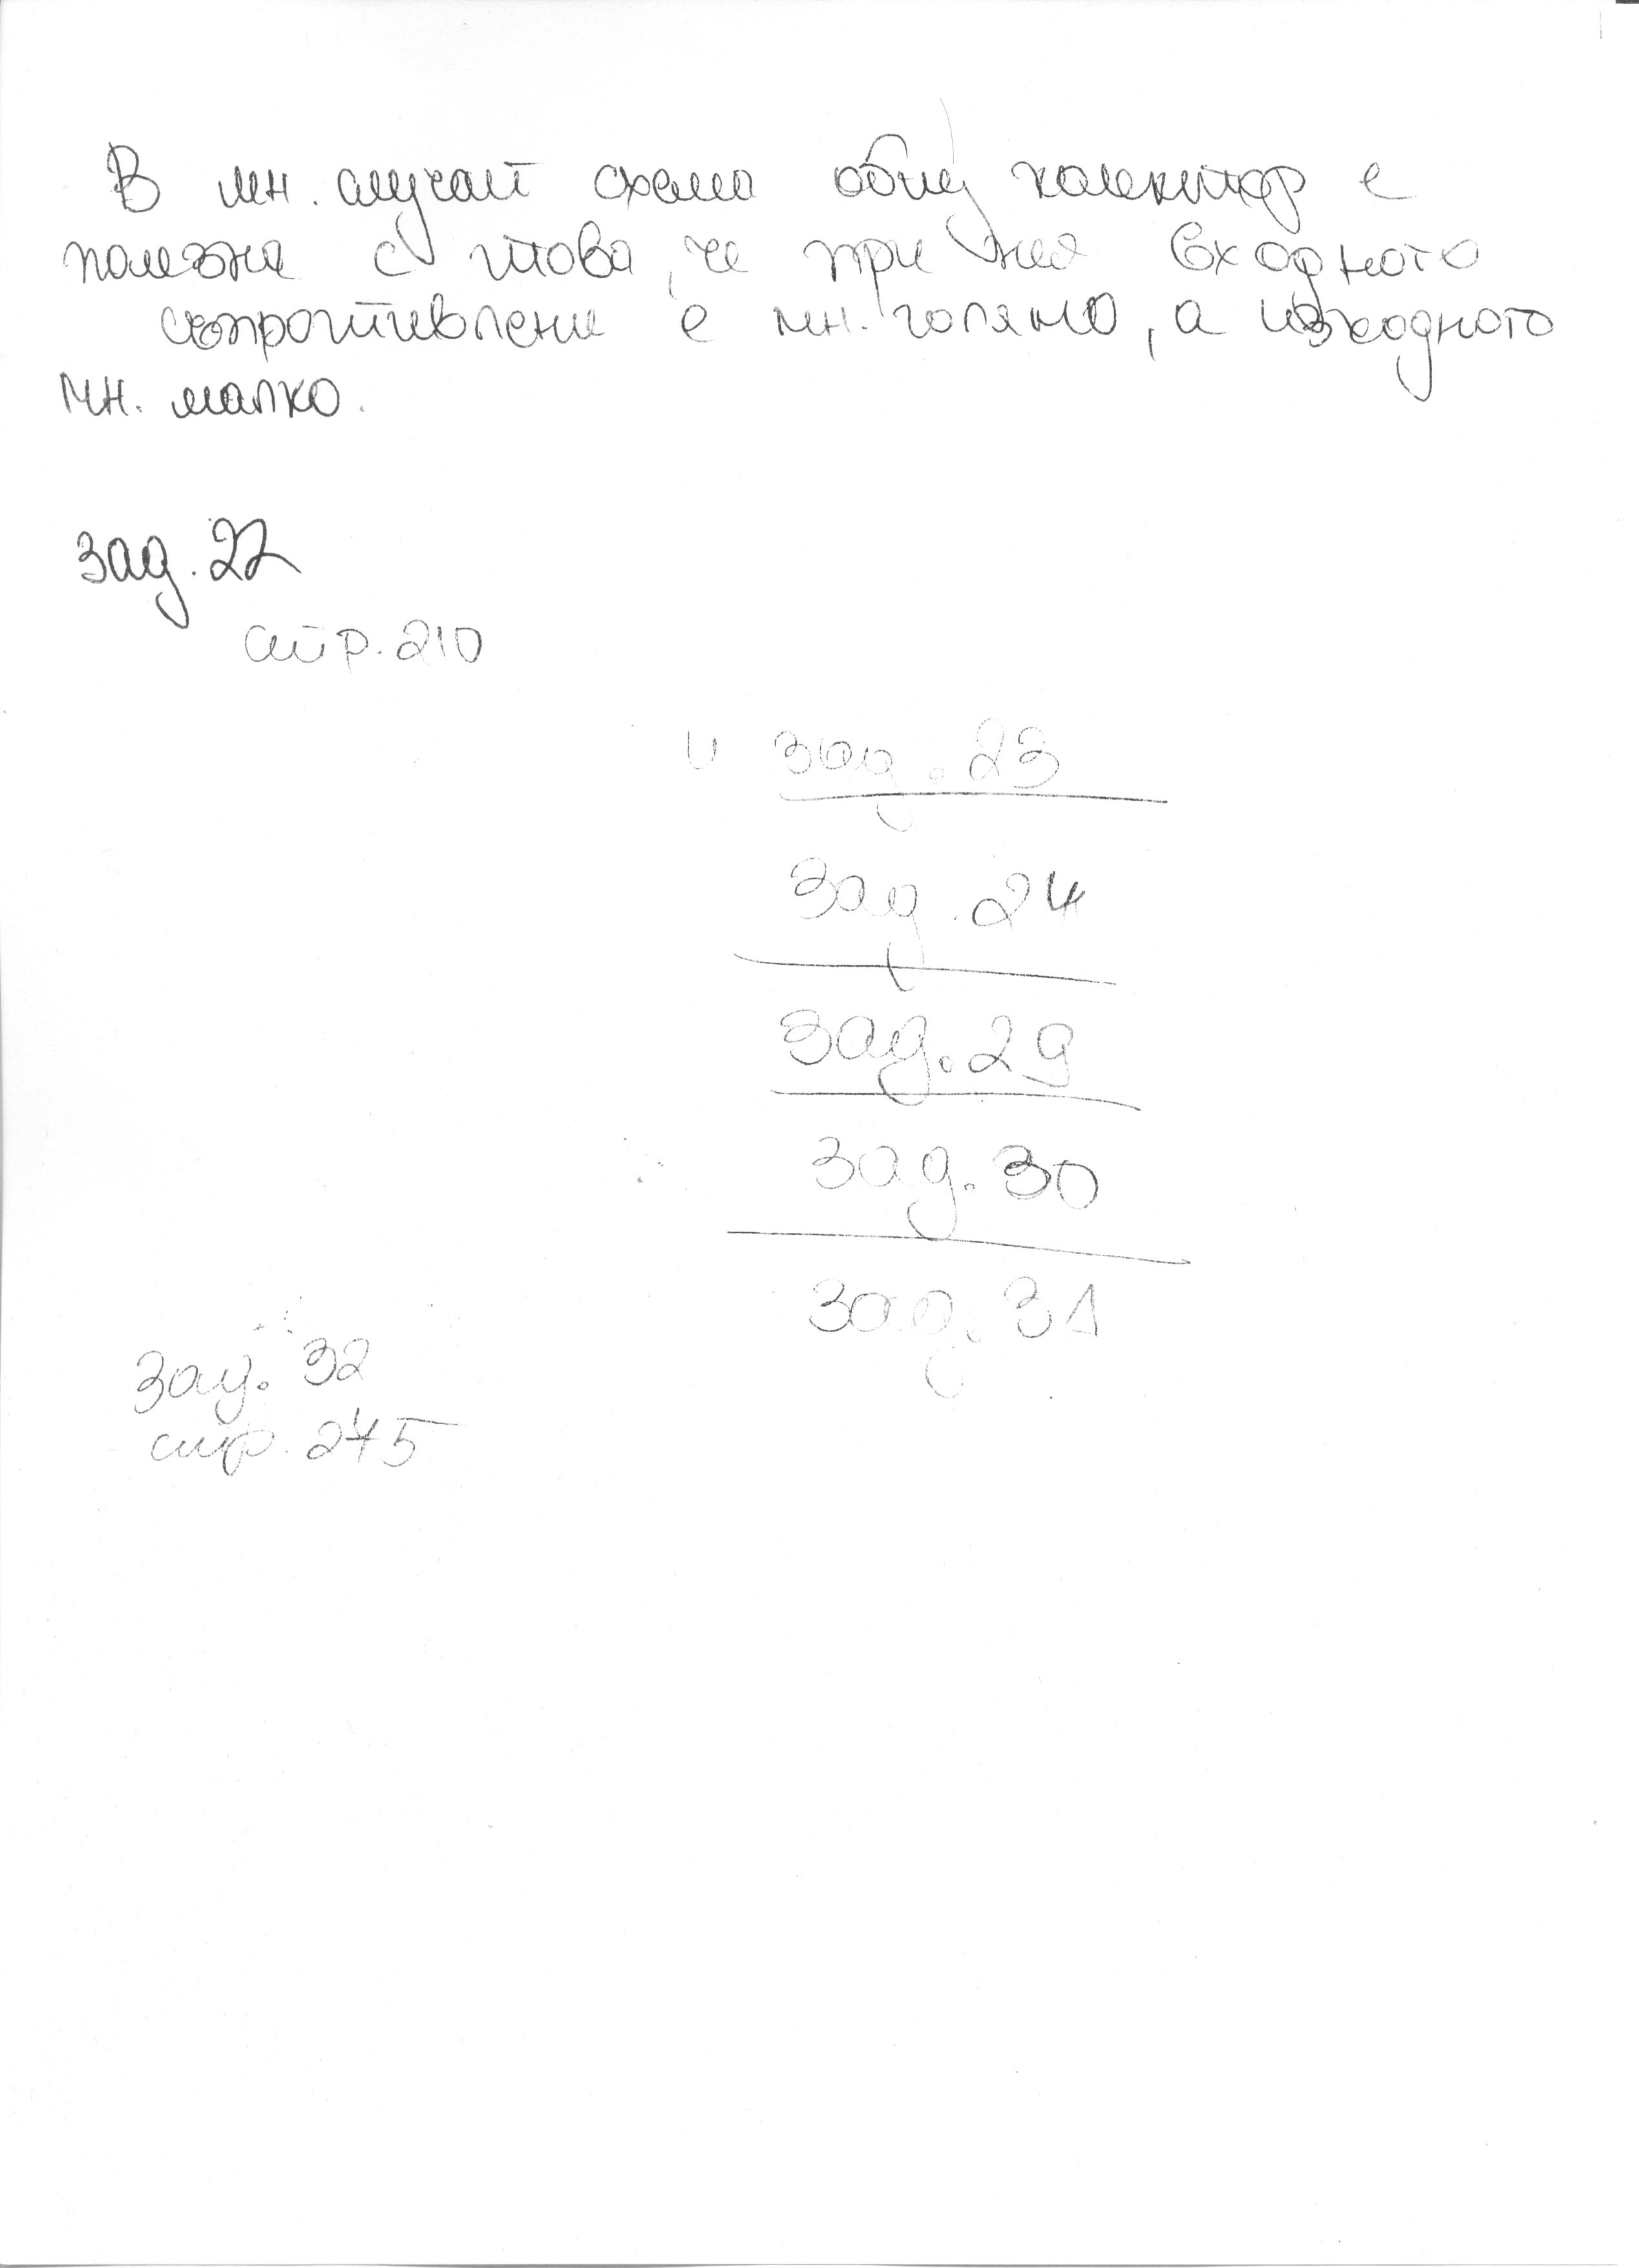 В мн. случаи схема общ колектор е
полезна с това, че при нея входното
съпротивление е мн. голямо, а изходното
мн. малко.
зад. 22
стр. 210
и зад. 23
зад. 24
зад. 29
зад. 30
зад. 31
зад. 32
стр. 245